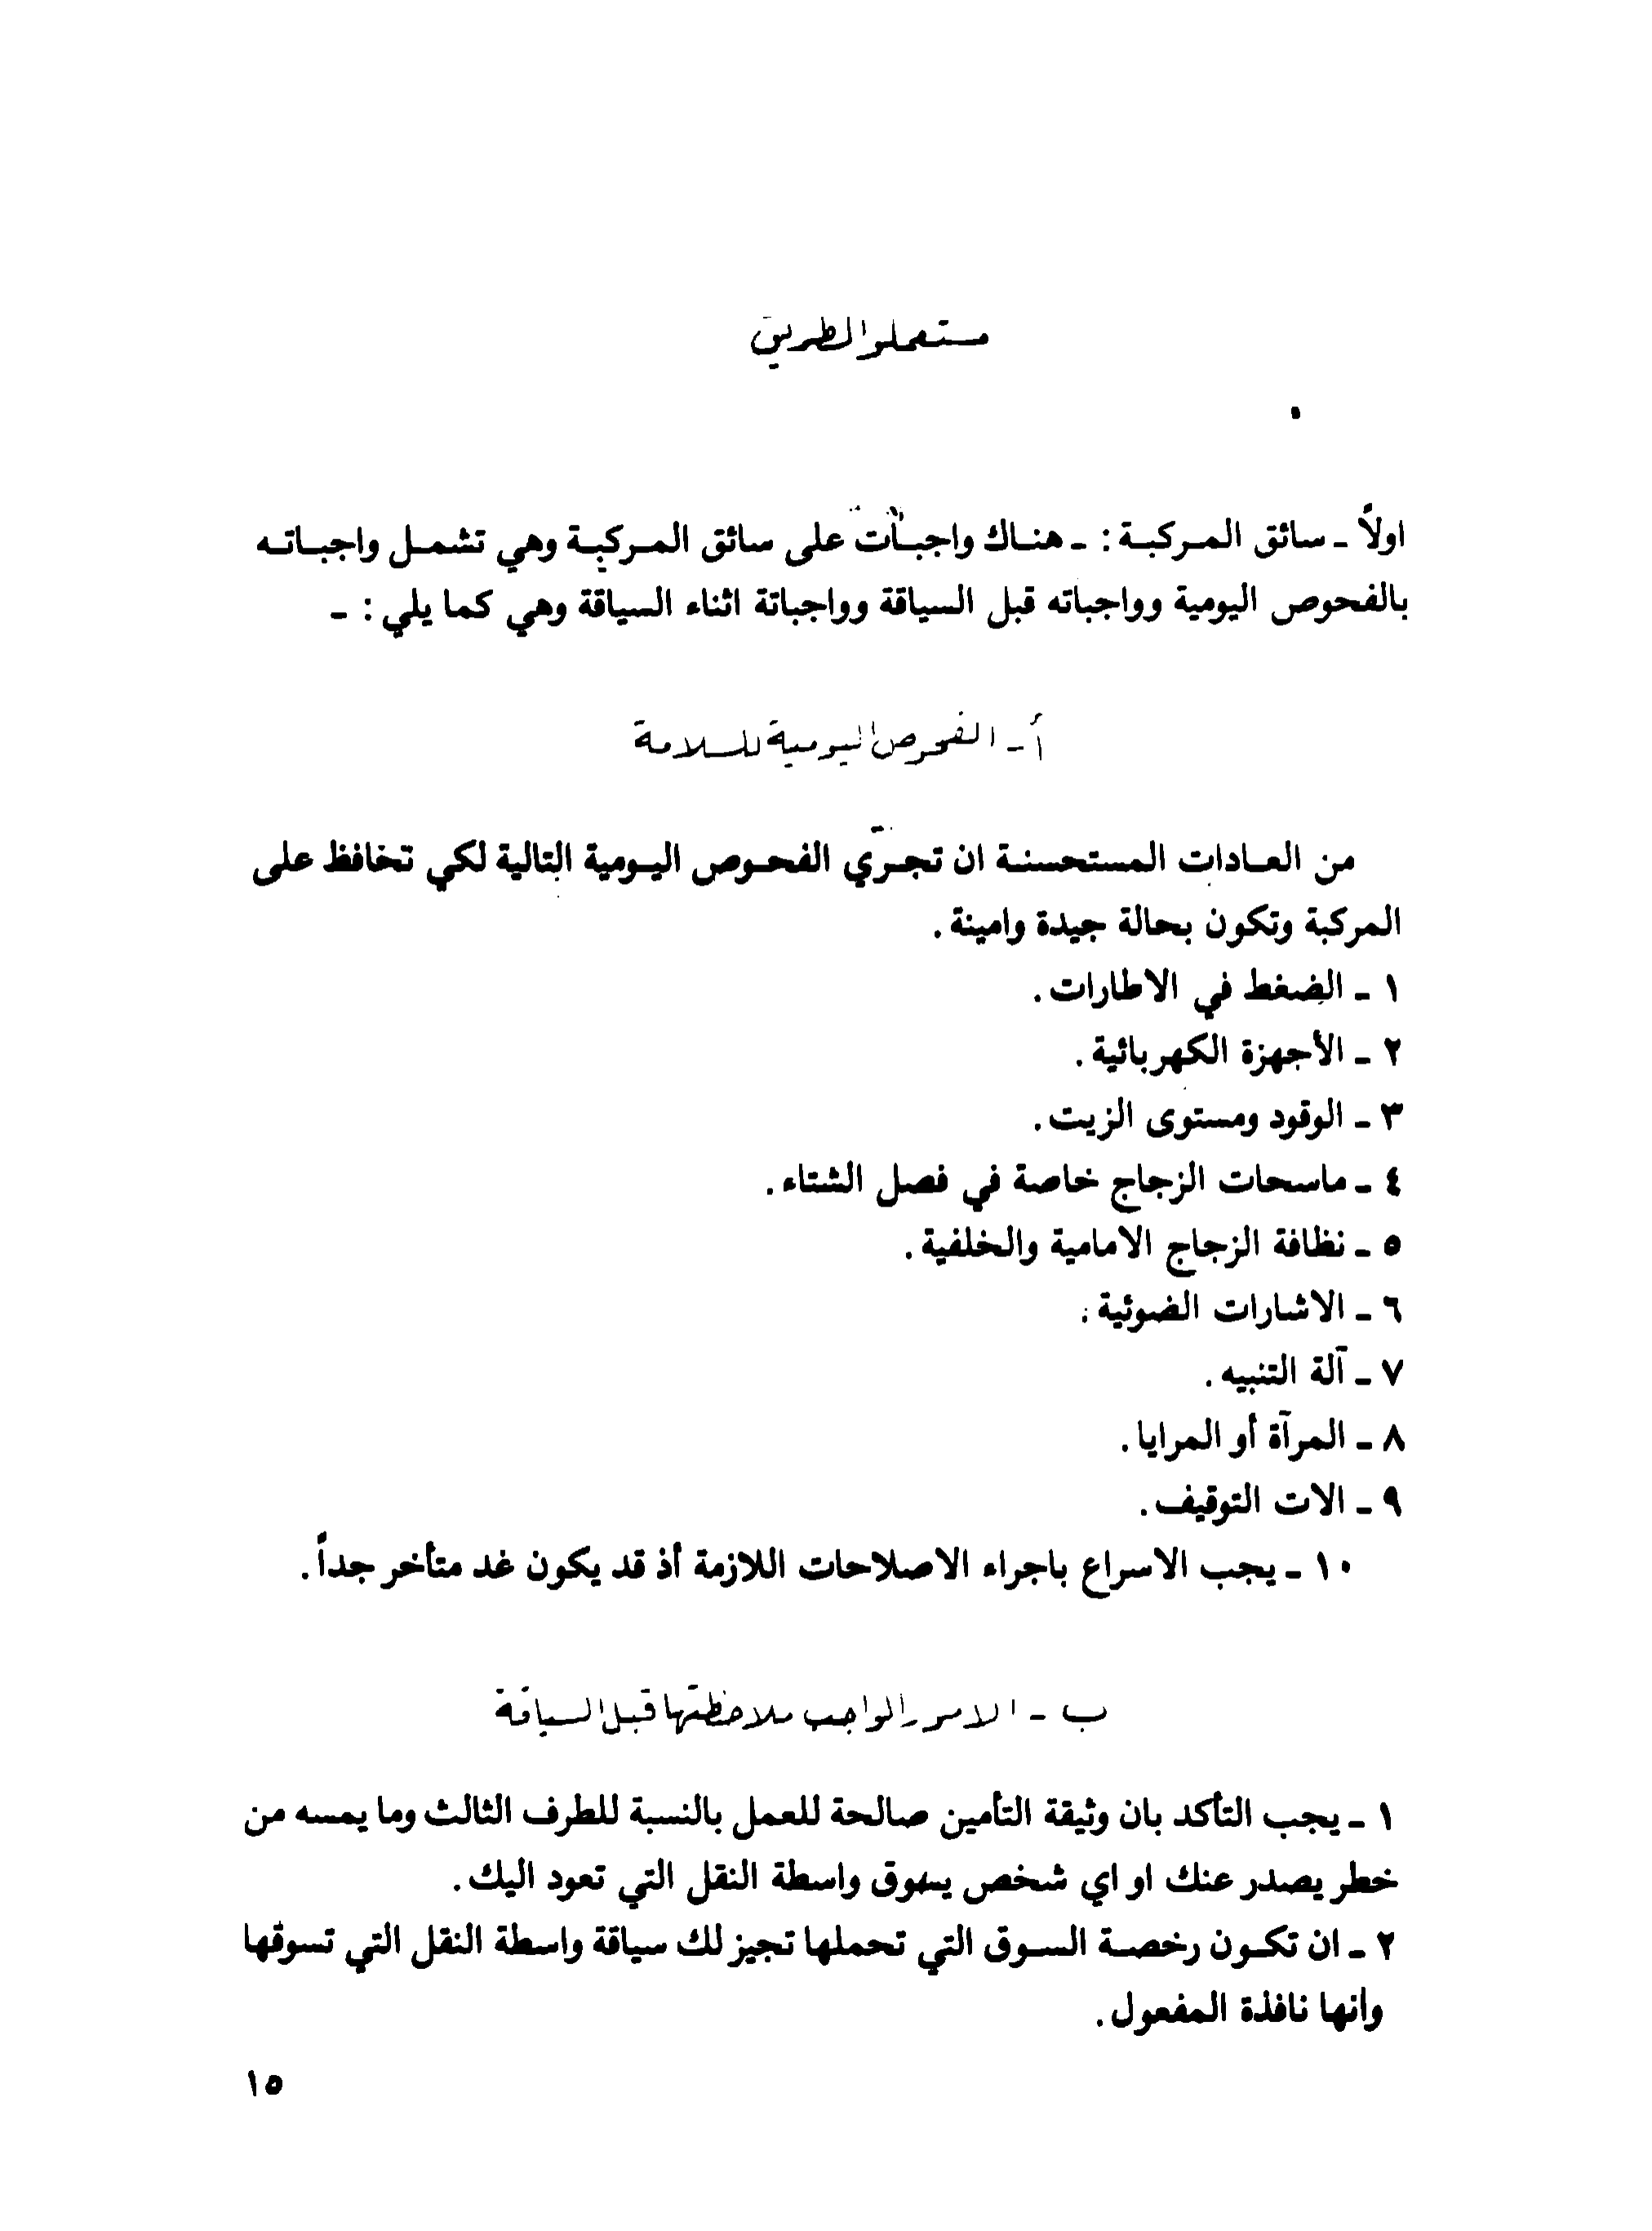 مستعملو الطريق
اولاً ـ سائق المركبة : ـ هناك واجبات على سائق المركبة وهي تشمل واجباته
بالفحوص اليومية وواجباته قبل السياقة وواجباتة اثناء السياقة وهي كما يلي : ـ
أ ـ الفحوص اليومية للسلامة
من العادات المستحسنة ان تجري الفحوص اليومية التالية لكي تحافظ على
المركبة وتكون بحالة جيدة وامينة .
١ ـ الضغط في الاطارات .
٢ ـ الأجهزة الكهربائية .
٣ ـ الوقود ومستوى الزيت .
٤ ـ ماسحات الزجاج خاصة في فصل الشتاء .
٥ ـ نظافة الزجاج الامامية والخلفية .
٦ ـ الاشارات الضوئية .
٧ ـ آلة التنبيه .
٨ ـ المرآة أو المرايا .
٩ ـ الات التوقيف .
١٠ ـ يجب الاسراع باجراء الاصلاحات اللازمة أذ قد يكون غد متأخر جداً .
ب ـ الامور الواجب ملاحظتها قبل السياقة
١ ـ يجب التأكد بان وثيقة التأمين صالحة للعمل بالنسبة للطرف الثالث وما يمسه من
خطر يصدر عنك او اي شخص يسوق واسطة النقل التي تعود اليك .
٢ ـ ان تكون رخصة السوق التي تحملها تجيز لك سياقة واسطة النقل التي تسوقها
وأنها نافذة المفعول .
١٥